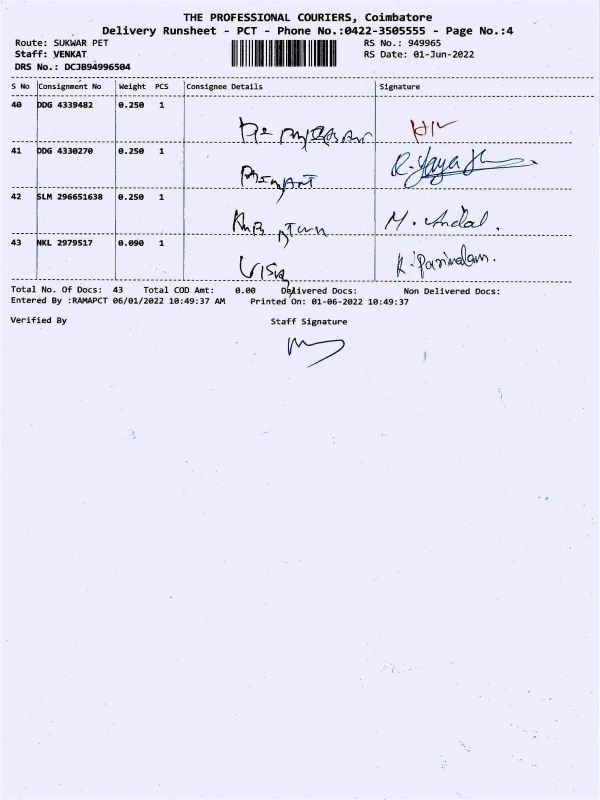 THE PROFESSIONAL COURIERS, Coimbatore
Delivery Runsheet - PCT - Phone No.:0422-3505555 - Page No.:4
Route: SUKWAR PET RS No.: 949965
Staff: VENKAT RS Date: 01-Jun-2022
DRS No.: DCJB94996504
S No Consignment No Weight PCS Consignee Details Signature
40 DDG 4339482 0.250 1
41 DDG 4330270 0.250 1
42 SLM 296651638 0.250 1 M. Andal.
43 NKL 2979517 0.090 1 K. Parimalam.
Total No. Of Docs: 43 Total COD Amt: 0.00 Delivered Docs: Non Delivered Docs:
Entered By :RAMAPCT 06/01/2022 10:49:37 AM Printed On: 01-06-2022 10:49:37
Verified By Staff Signature